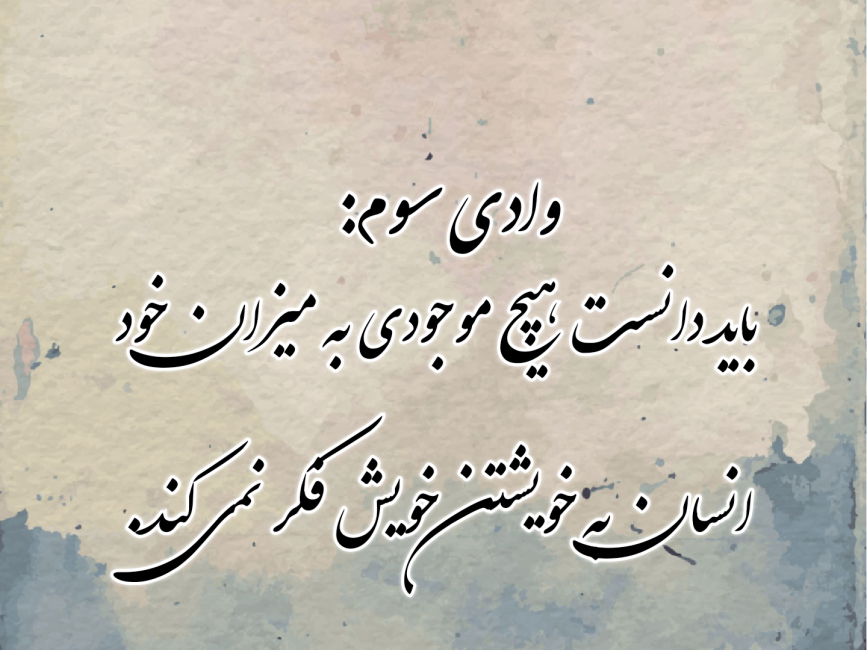 وادی سوم:
باید دانست هیچ موجودی به میزان خود
انسان به خویشتن خویش فکر نمی کند.